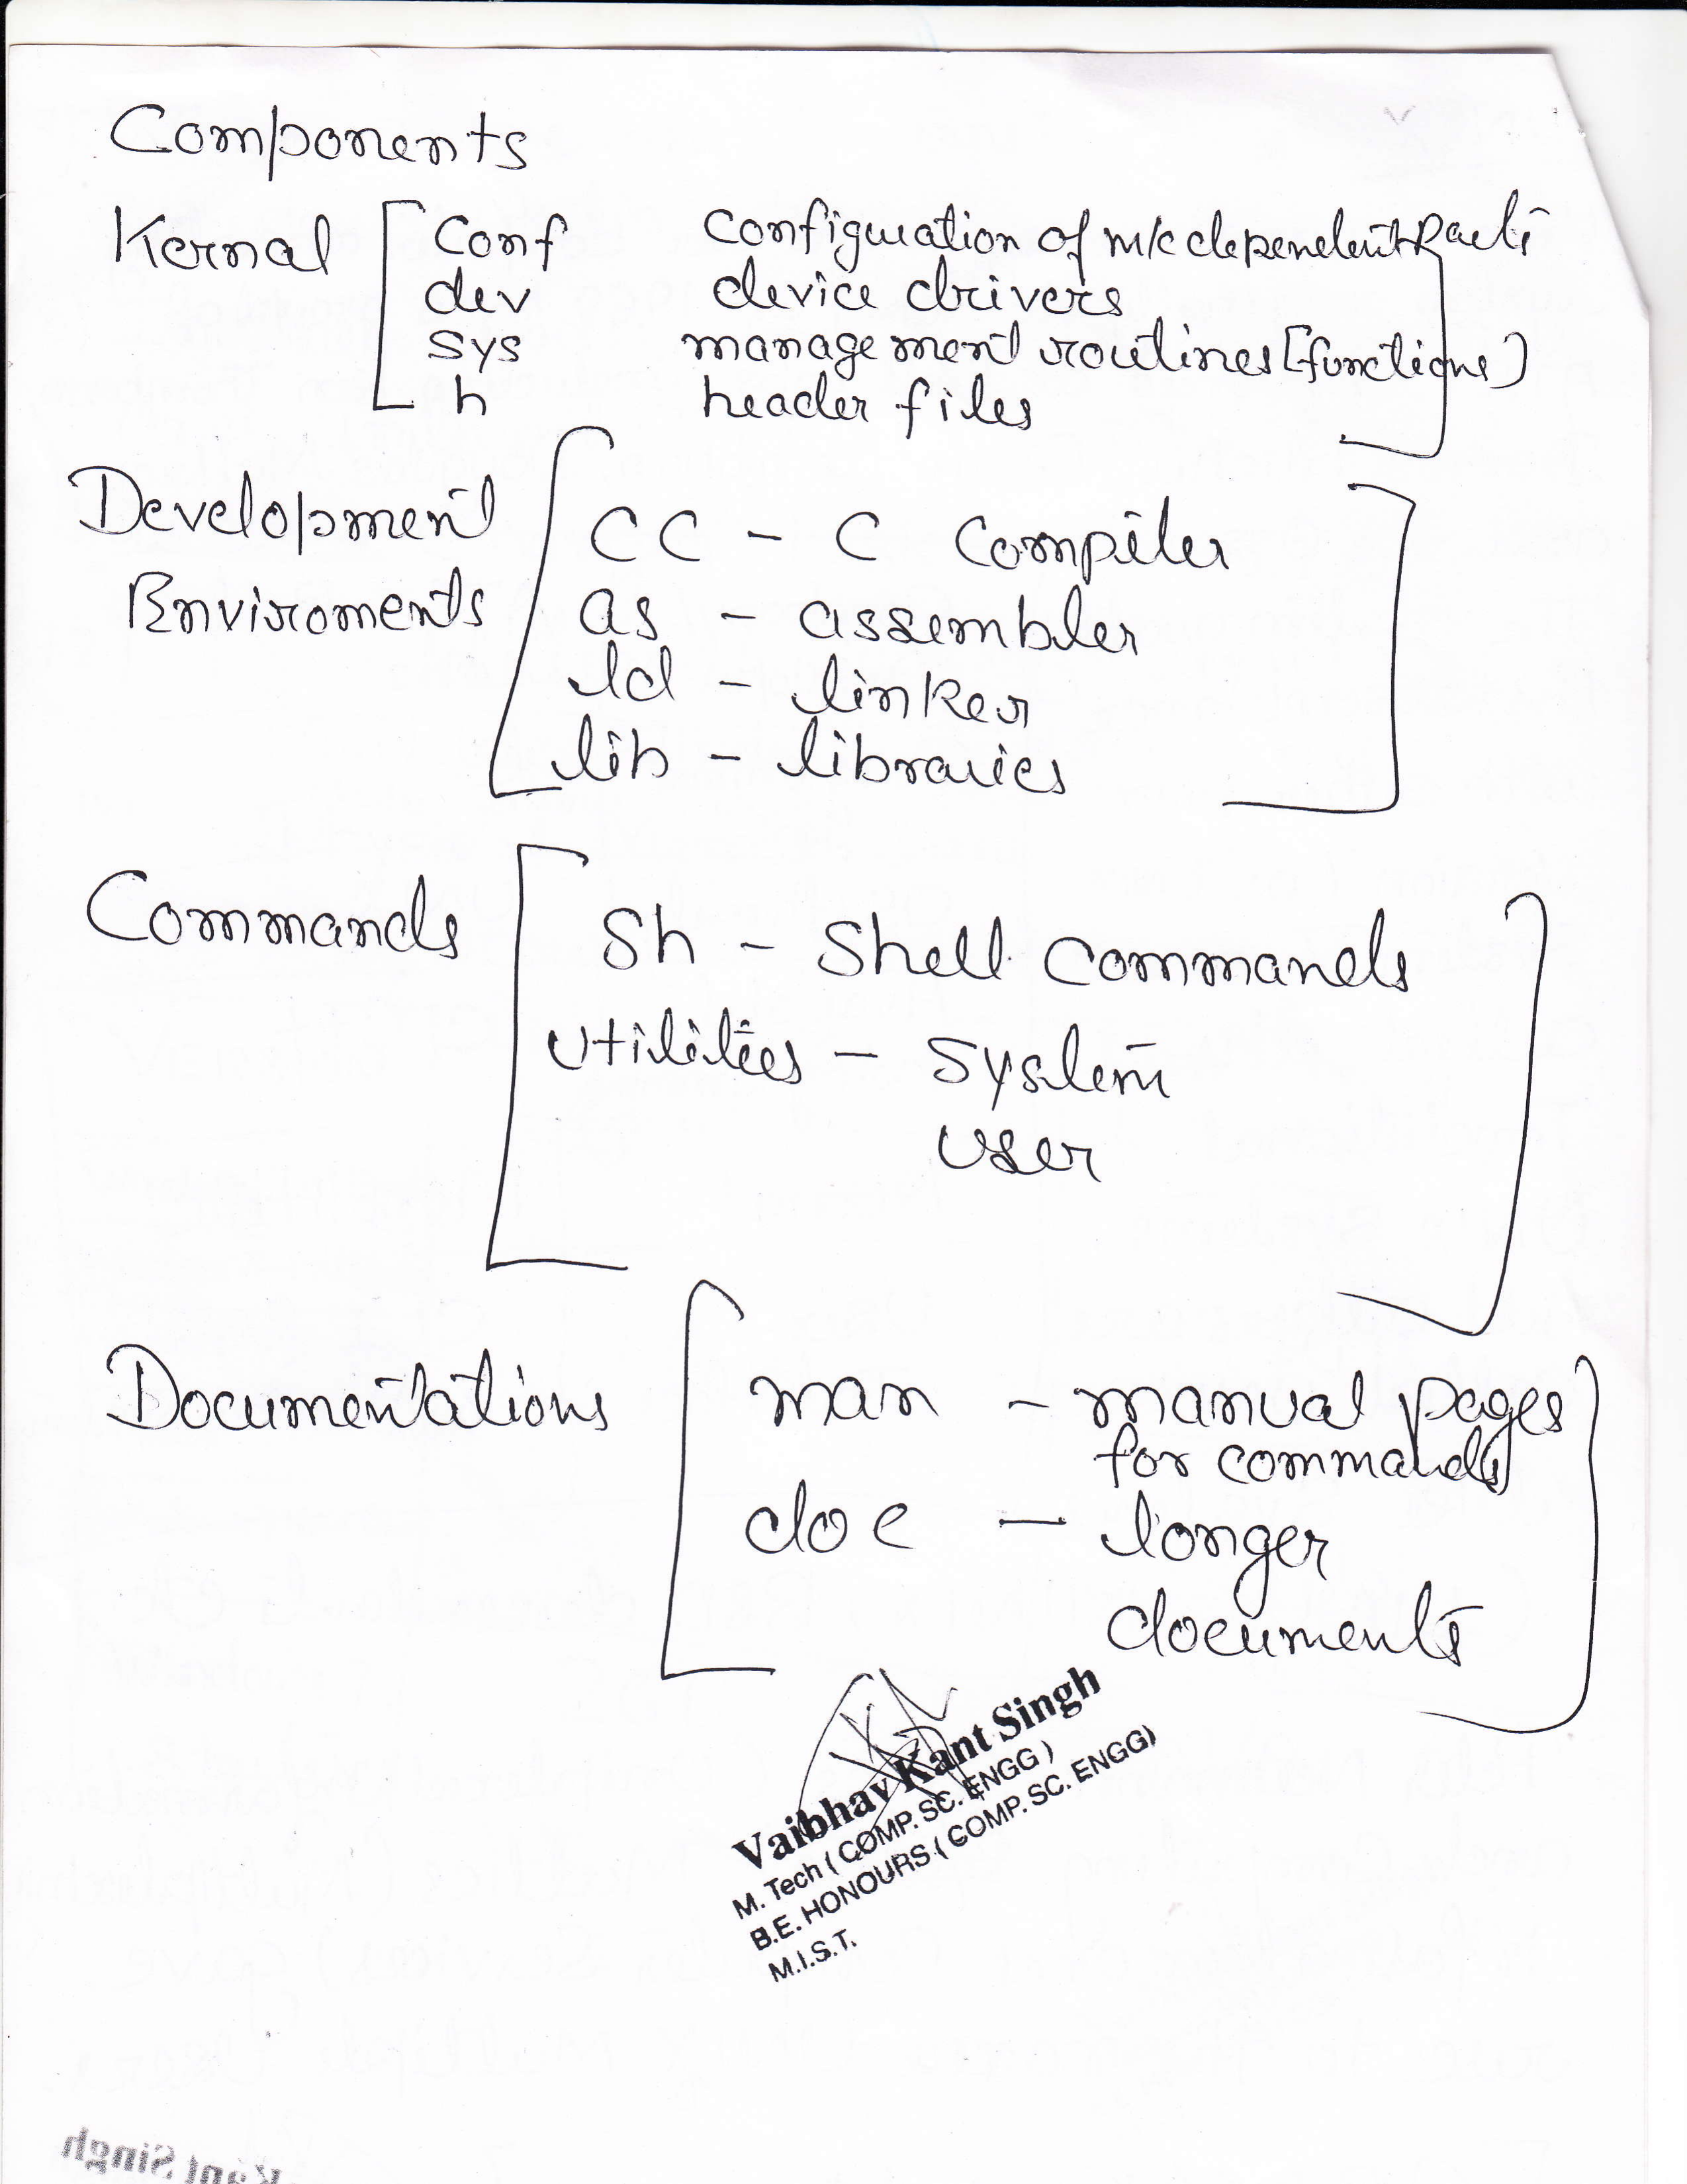 Components
Kernal [ Conf configuration of m/c dependent parts
dev device drivers
sys management routines [functions)
h header files ]
Development
Enviroments [ CC - C Compiler
as - assembler
ld - linker
lib - libraries ]
Commands [ Sh - Shell Commands
Utilities - System
User ]
Documentations [ man - manual pages
for commands
doc - longer
documents ]
Vaibhav Kant Singh
M. Tech ( COMP. SC. ENGG )
B.E. HONOURS ( COMP. SC. ENGG)
M.I.S.T.
Kant Singh